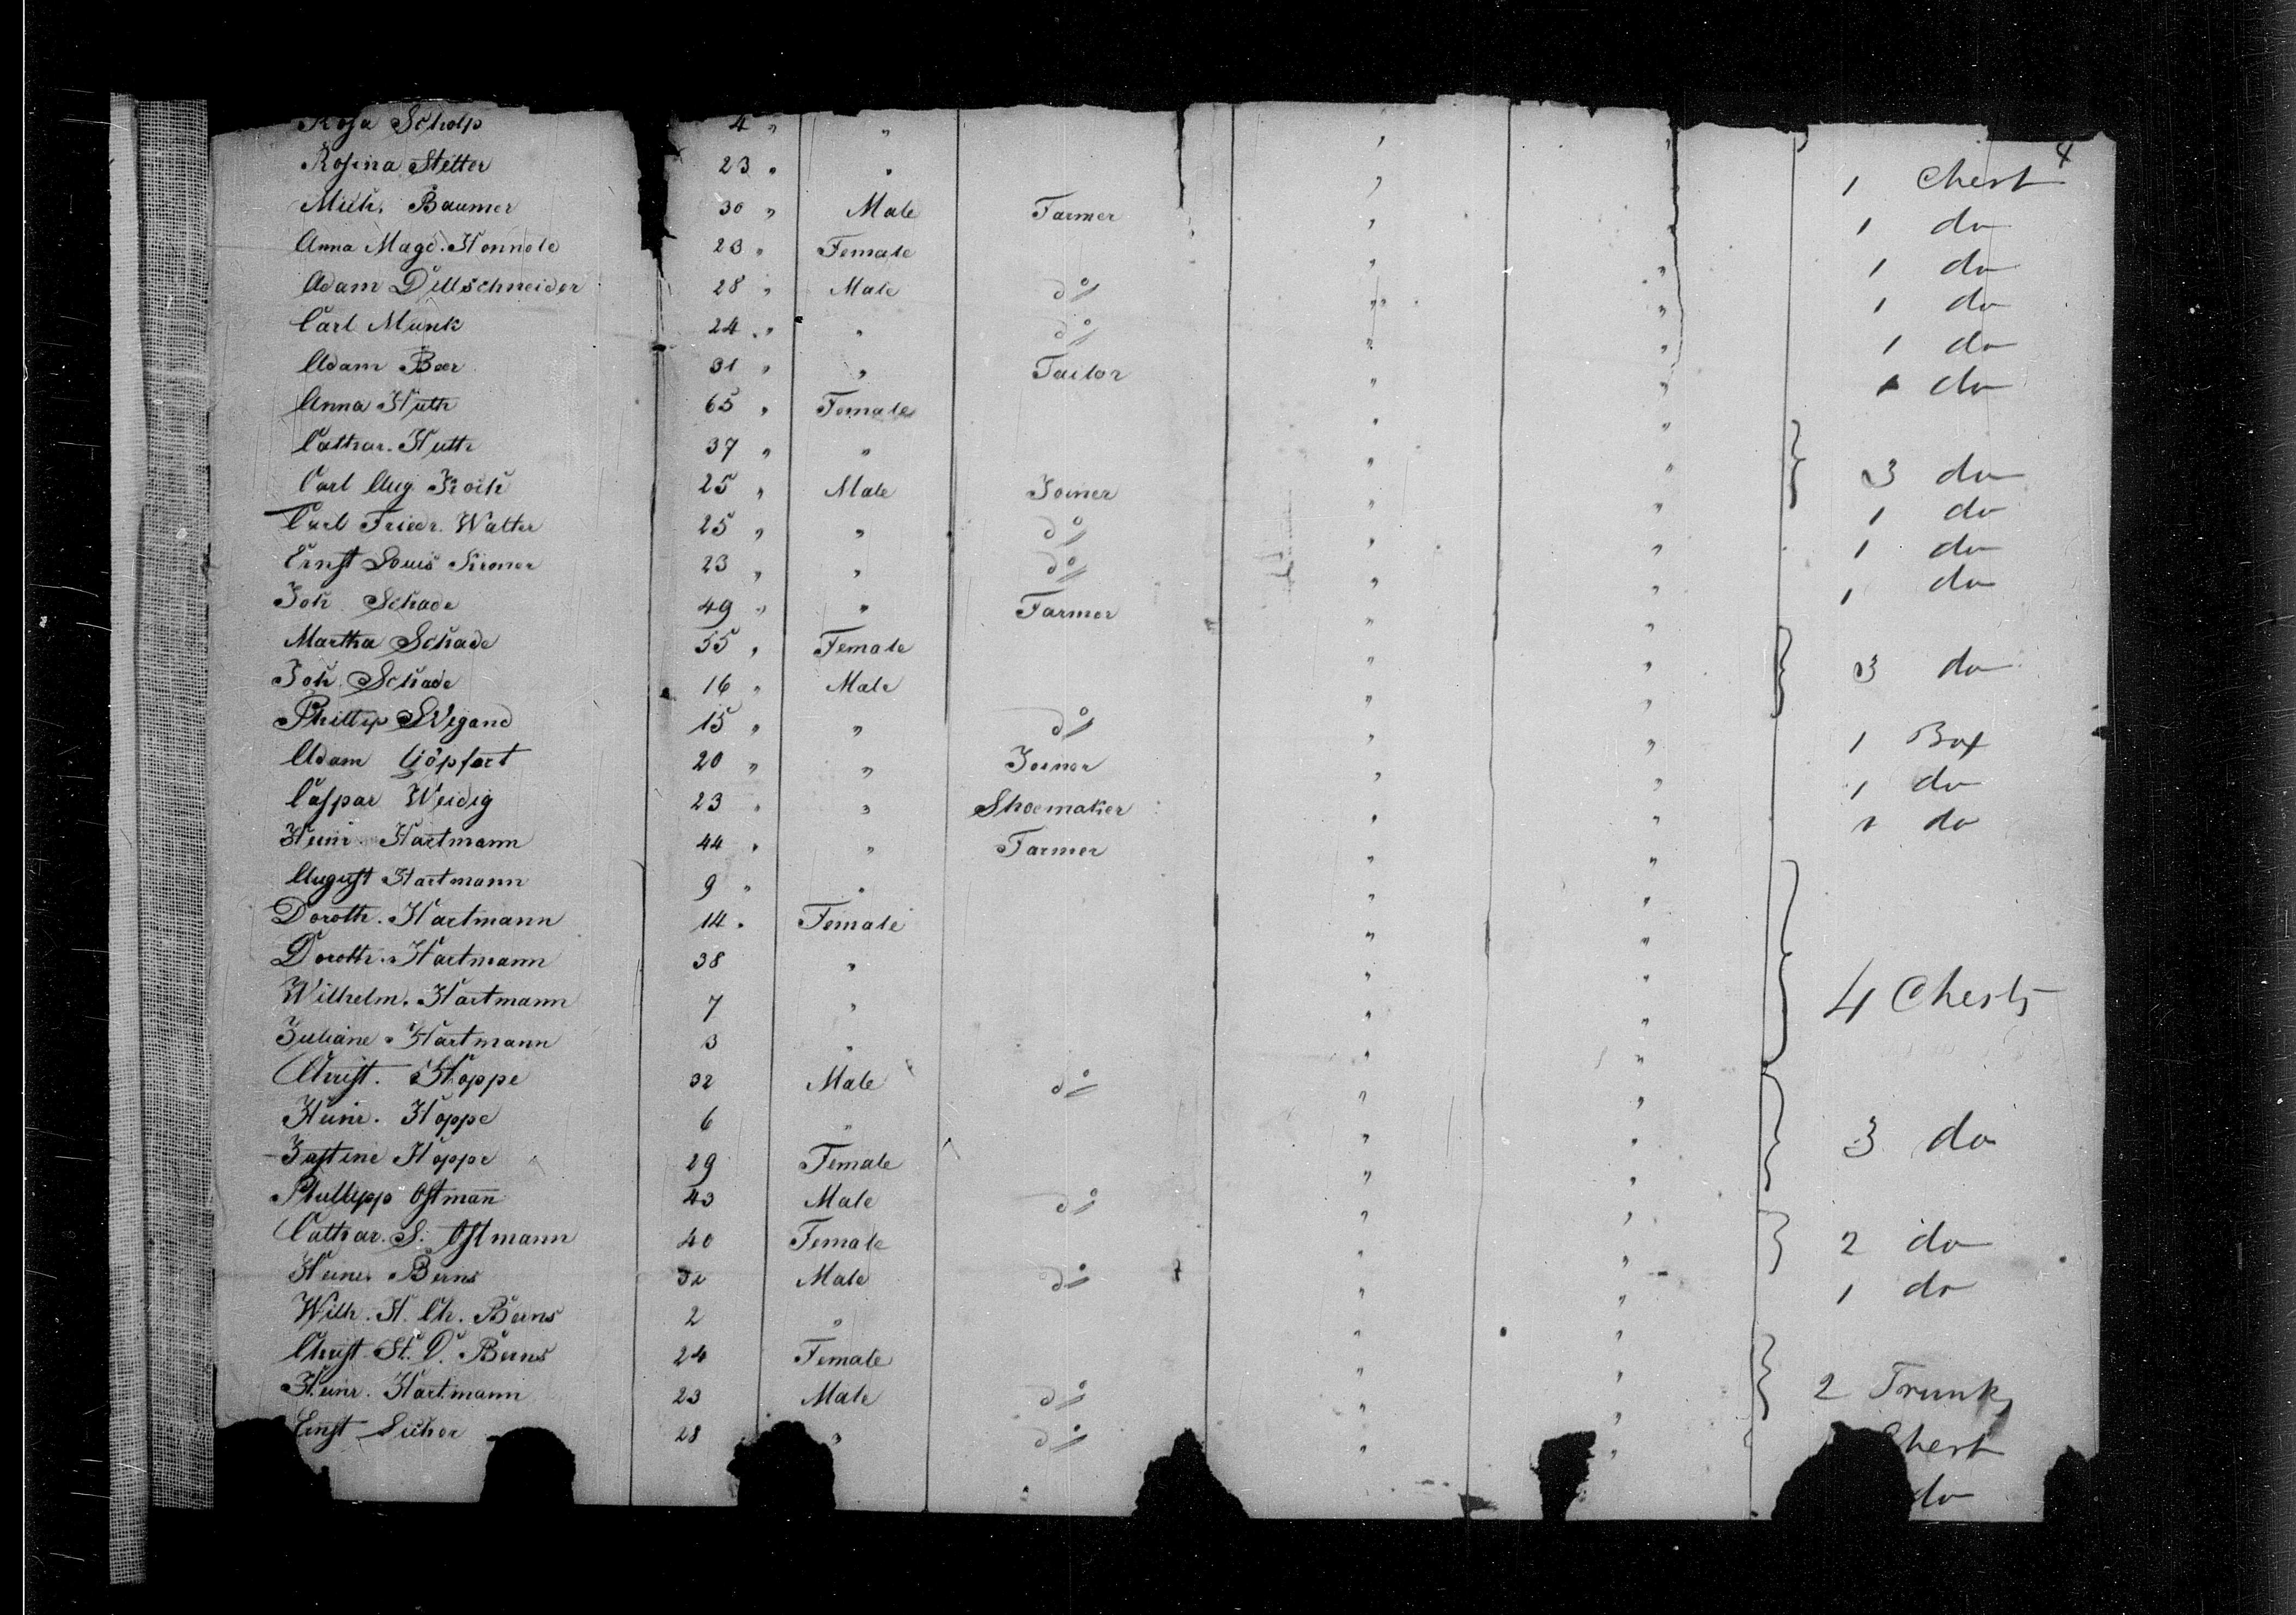 4
Rosa Scholp 4 " "
Rosina Stetter 23 " " " " 1 Chest
Mich. Baumer 30 " Male Farmer " " 1 do
Anna Magd. Honnole 23 " Female " " 1 do
Adam Dillschneider 28 " Male do " " 1 do
Carl Munk 24 " " do " " 1 do
Adam Beer 31 " " Tailor " " 1 do
Anna Huth 65 " Female " "
Cathar. Huth 37 " " " " 3 do
Carl Aug. Koch 25 " Male Joiner " " 1 do
Carl Friedr. Walter 25 " " do " " 1 do
Ernst Louis Kroner 23 " " do " " 1 do
Joh. Schade 49 " " Farmer " "
Martha Schade 55 " Female " " 3 do
Joh. Schade 16 " Male " "
Phillip Wegand 15 " " do " " 1 Box
Adam Göpfert 20 " " Joiner " " 1 do
Caspar Weidig 23 " " Shoemaker " " 1 do
Heinr. Hartmann 44 " " Farmer " "
August Hartmann 9 " " " "
Doroth. Hartmann 14 " Female " "
Doroth. Hartmann 38 " " "
Wilhelm. Hartmann 7 " " " 4 Chests
Juliane Hartmann 3 " " "
Christ. Hoppe 32 Male do " "
Heinr. Hoppe 6 " " " 3 do
Justine Hoppe 29 Female " "
Phillipp Ostmañ 43 Male do " "
Cathar. S. Ostmann 40 Female " " 2 do
Heinr. Berns 32 Male do " " 1 do
Wilh. H. Ch. Berns 2 " " "
Christ. St. D. Berns 24 Female " "
Heinr. Hartmann 23 Male do " " 2 Trunks
Ernst 28 " do " " Chest
do